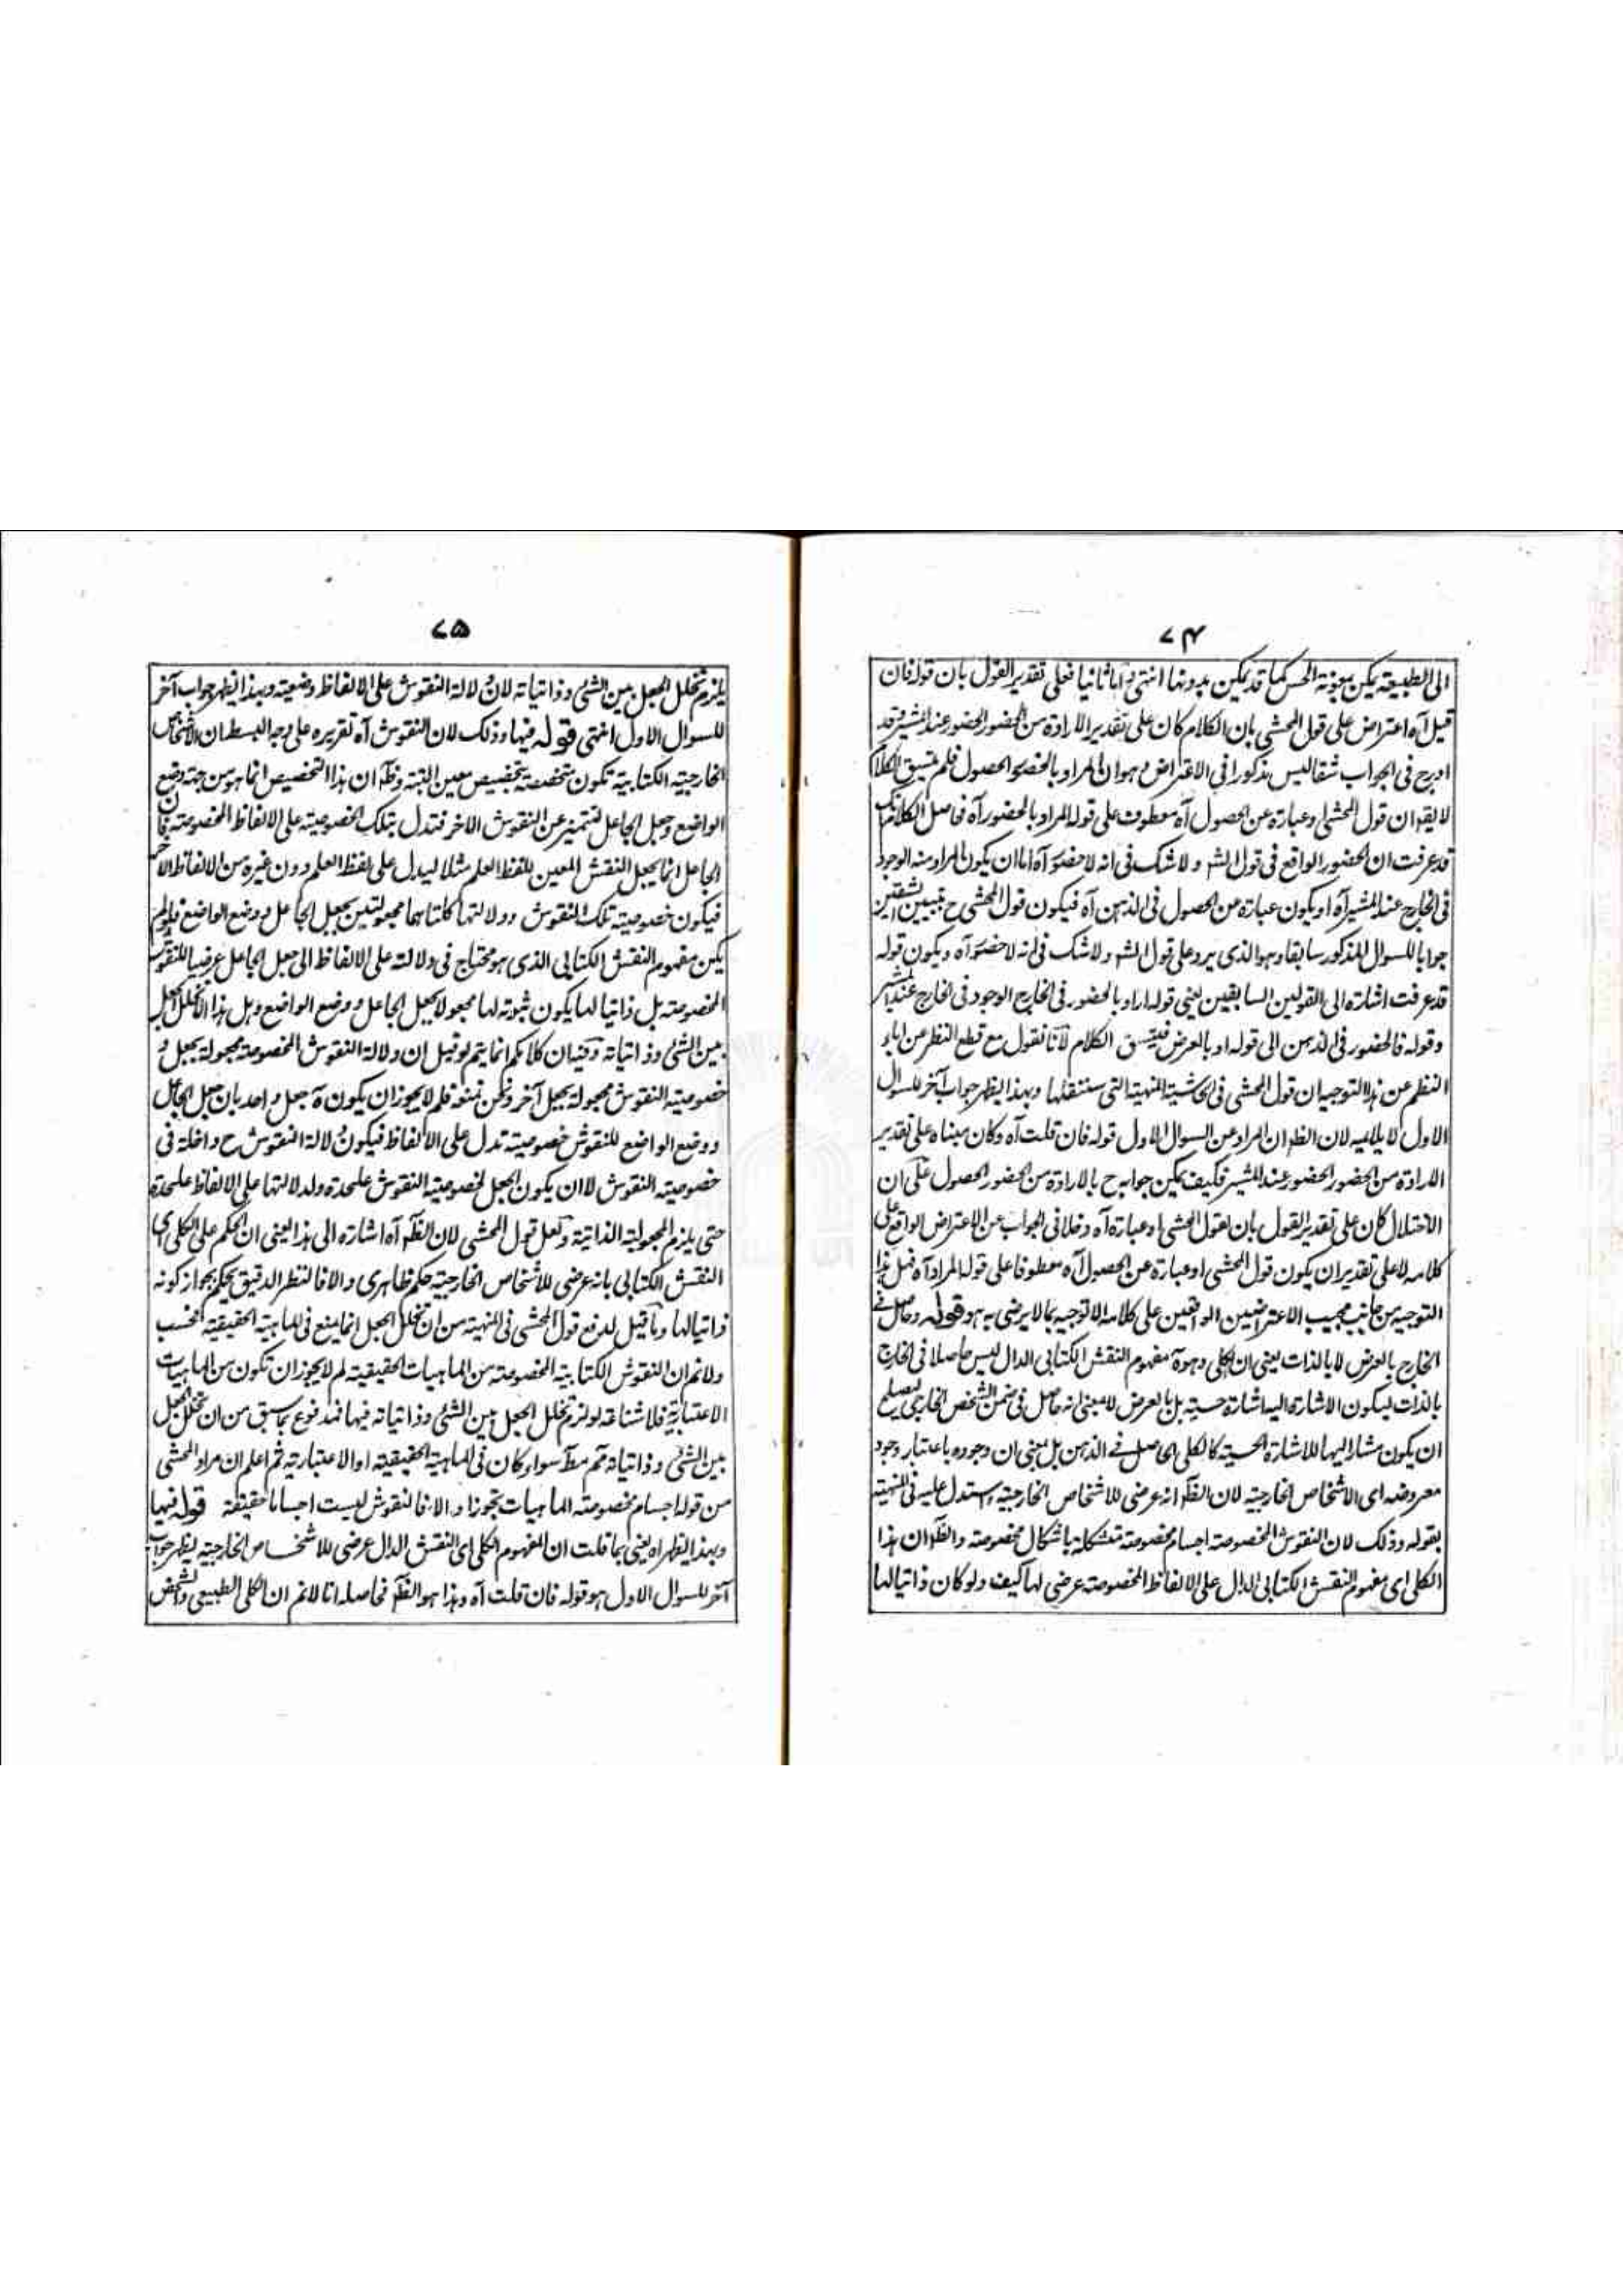 ۷۴
الى الطبيعة يمكن بمعونة الحس كما قد يمكن بدونها انتهى واما ثانيا فعلى تقدير القول بان قوله فان
قيل آه اعتراض على قول المحشى بان الكلام كان على تقدير الارادة من الحضور الحضور عند المشير وقد
ادرج فى الجواب شقا ليس مذكورا فى الاعتراض وهو ان المراد بالحضور الحصول فلم يتسق الكلام
لا يقه ان قول المحشى او عبارة عن الحصول آه معطوف على قوله المراد بالحضور آه فحاصل الكلام انك
قد عرفت ان الحضور الواقع فى قول الشه ولا شك فى انه لا حضور آه اما ان يكون المراد منه الوجود
فى الخارج عند المشير آه او يكون عبارة من الحصول فى الذهن آه فيكون قول المحشى ح بتبيين الشقين
جوابا للسوال المذكور سابقا وهو الذى يرد على قول الشه ولا شك فى انه لا حضور آه ويكون قوله
قد عرفت اشارة الى القولين السابقين يعنى قوله اراد بالحضور فى الخارج الوجود فى الخارج عند المشير
وقوله فالحضور فى الذهن الى قوله او بالعرض فيتسق الكلام لانا نقول مع قطع النظر عن اباء
النظم عن هذا التوجيه ان قول المحشى فى الحاشية المنهية التى سننقلها وبهذا يظهر جواب آخر للسوال
الاول لا يلائمه لان الظه ان المراد من السوال الاول قوله فان قلت آه وكان مبناه على تقدير
الارادة من الحضور الحضور عند المشير فكيف يمكن جوابه ح بالارادة من الحضور الحصول على ان
الاختلال كان على تقدير القول بان لقول المحشى او عبارة آه دخلا فى الجواب عن الاعتراض الواقع على
كلامه لا على تقدير ان يكون قول المحشى او عبارة عن الحصول آه معطوفا على قوله المراد آه فهل هذا
التوجيه من جانب مجيب الاعتراضين الواقعين على كلامه الا توجيه بما لا يرضى به هو قوله وحاصل فى
الخارج بالعرض لا بالذات يعنى ان الكلى وهو آه مفهوم النقش الكتابى الدال ليس حاصلا فى الخارج
بالذات ليكون الاشارة اليه اشارة حسية بل بالعرض لا بمعنى انه حاصل فى ضمن الشخص الخارجى ليصلح
ان يكون مشارا اليها للاشارة الحسية كالكلى الحاصل فى الذهن بل بمعنى ان وجوده باعتبار وجود
معروضه اى الاشخاص الخارجية لان الظه انه عرضى للاشخاص الخارجية واستدل عليه فى المنهية
بقوله وذلك لان النقوش المخصوصة اجسام مخصوصة متشكلة باشكال مخصوصة والظه ان هذا
الكلى اى مفهوم النقش الكتابى الدال على الالفاظ المخصوصة عرضى لها كيف ولو كان ذاتيا لها
۷۵
يلزم تخلل الجعل بين الشئ وذاتياته لان دلالة النقوش على الالفاظ وضعية وبهذا يظهر جواب آخر
للسوال الاول انتهى قوله فيها وذلك لان النقوش آه تقريره على وجه البسط ان الاشخاص
الخارجية الكتابية تكون متخصصة بتخصيص معين البتة وظه ان هذا التخصيص انما هو من جهة وضع
الواضع وجعل الجاعل لتتميز عن النقوش الاخر فتدل بتلك الخصوصية على الالفاظ المخصوصة فان
الجاعل انما يجعل النقش المعين للفظ العلم مثلا ليدل على لفظ العلم دون غيره من الالفاظ الاخر
فيكون خصوصية تلك النقوش ودلالتها كلتاهما مجعولتين بجعل الجاعل ووضع الواضع فلو لم
يكن مفهوم النقش الكتابى الذى هو محتاج فى دلالته على الالفاظ الى جعل الجاعل عرضيا للنقوش
المخصوصة بل ذاتيا لها يكون ثبوته لها مجعولا بجعل الجاعل ووضع الواضع وهل هذا الا تخلل الجعل
بين الشئ وذاتياته وفيه ان كلامكم انما يتم لو قيل ان دلالة النقوش المخصوصة مجعولة بجعل و
خصوصية النقوش مجعولة بجعل آخر ونحن نمنعه فلم لا يجوز ان يكون آه جعل واحد بان جعل الجاعل
ووضع الواضع للنقوش خصوصية تدل على الالفاظ فيكون دلالة النقوش ح داخلة فى
خصوصية النقوش لا ان يكون الجعل لخصوصية النقوش علٰحدة ولدلالتها على الالفاظ علٰحدة
حتى يلزم المجعولية الذاتية ولعل قول المحشى لان الظه آه اشارة الى هذا يعنى ان الحكم على الكلى اى
النقش الكتابى بانه عرضى للاشخاص الخارجية حكم ظاهرى والا فالنظر الدقيق يحكم بجواز كونه
ذاتيا لها وما قيل لدفع قول المحشى فى المنهية من ان تخلل الجعل انما يمنع فى الماهية الحقيقية فحسب
ولانم ان النقوش الكتابية المخصوصة من الماهيات الحقيقية لم لا يجوز ان تكون من الماهيات
الاعتبارية فلا شناعة لو لزم تخلل الجعل بين الشئ وذاتياته فيها فمدفوع بما سبق من ان تخلل الجعل
بين الشئ وذاتياته مم مطه سواء كان فى الماهية الحقيقية او الاعتبارية ثم اعلم ان مراد المحشى
من قوله اجسام مخصوصة الماهيات تجوزا والا فالنقوش ليست اجساما حقيقة قوله فيها
وبهذا يظهر آه يعنى بما قلت ان المفهوم الكلى اى النقش الدال عرضى للاشخاص الخارجية يظهر جواب
آخر للسوال الاول هو قوله فان قلت آه وهذا هو الظه فحاصله انا لانم ان الكلى الطبيعى والشخص